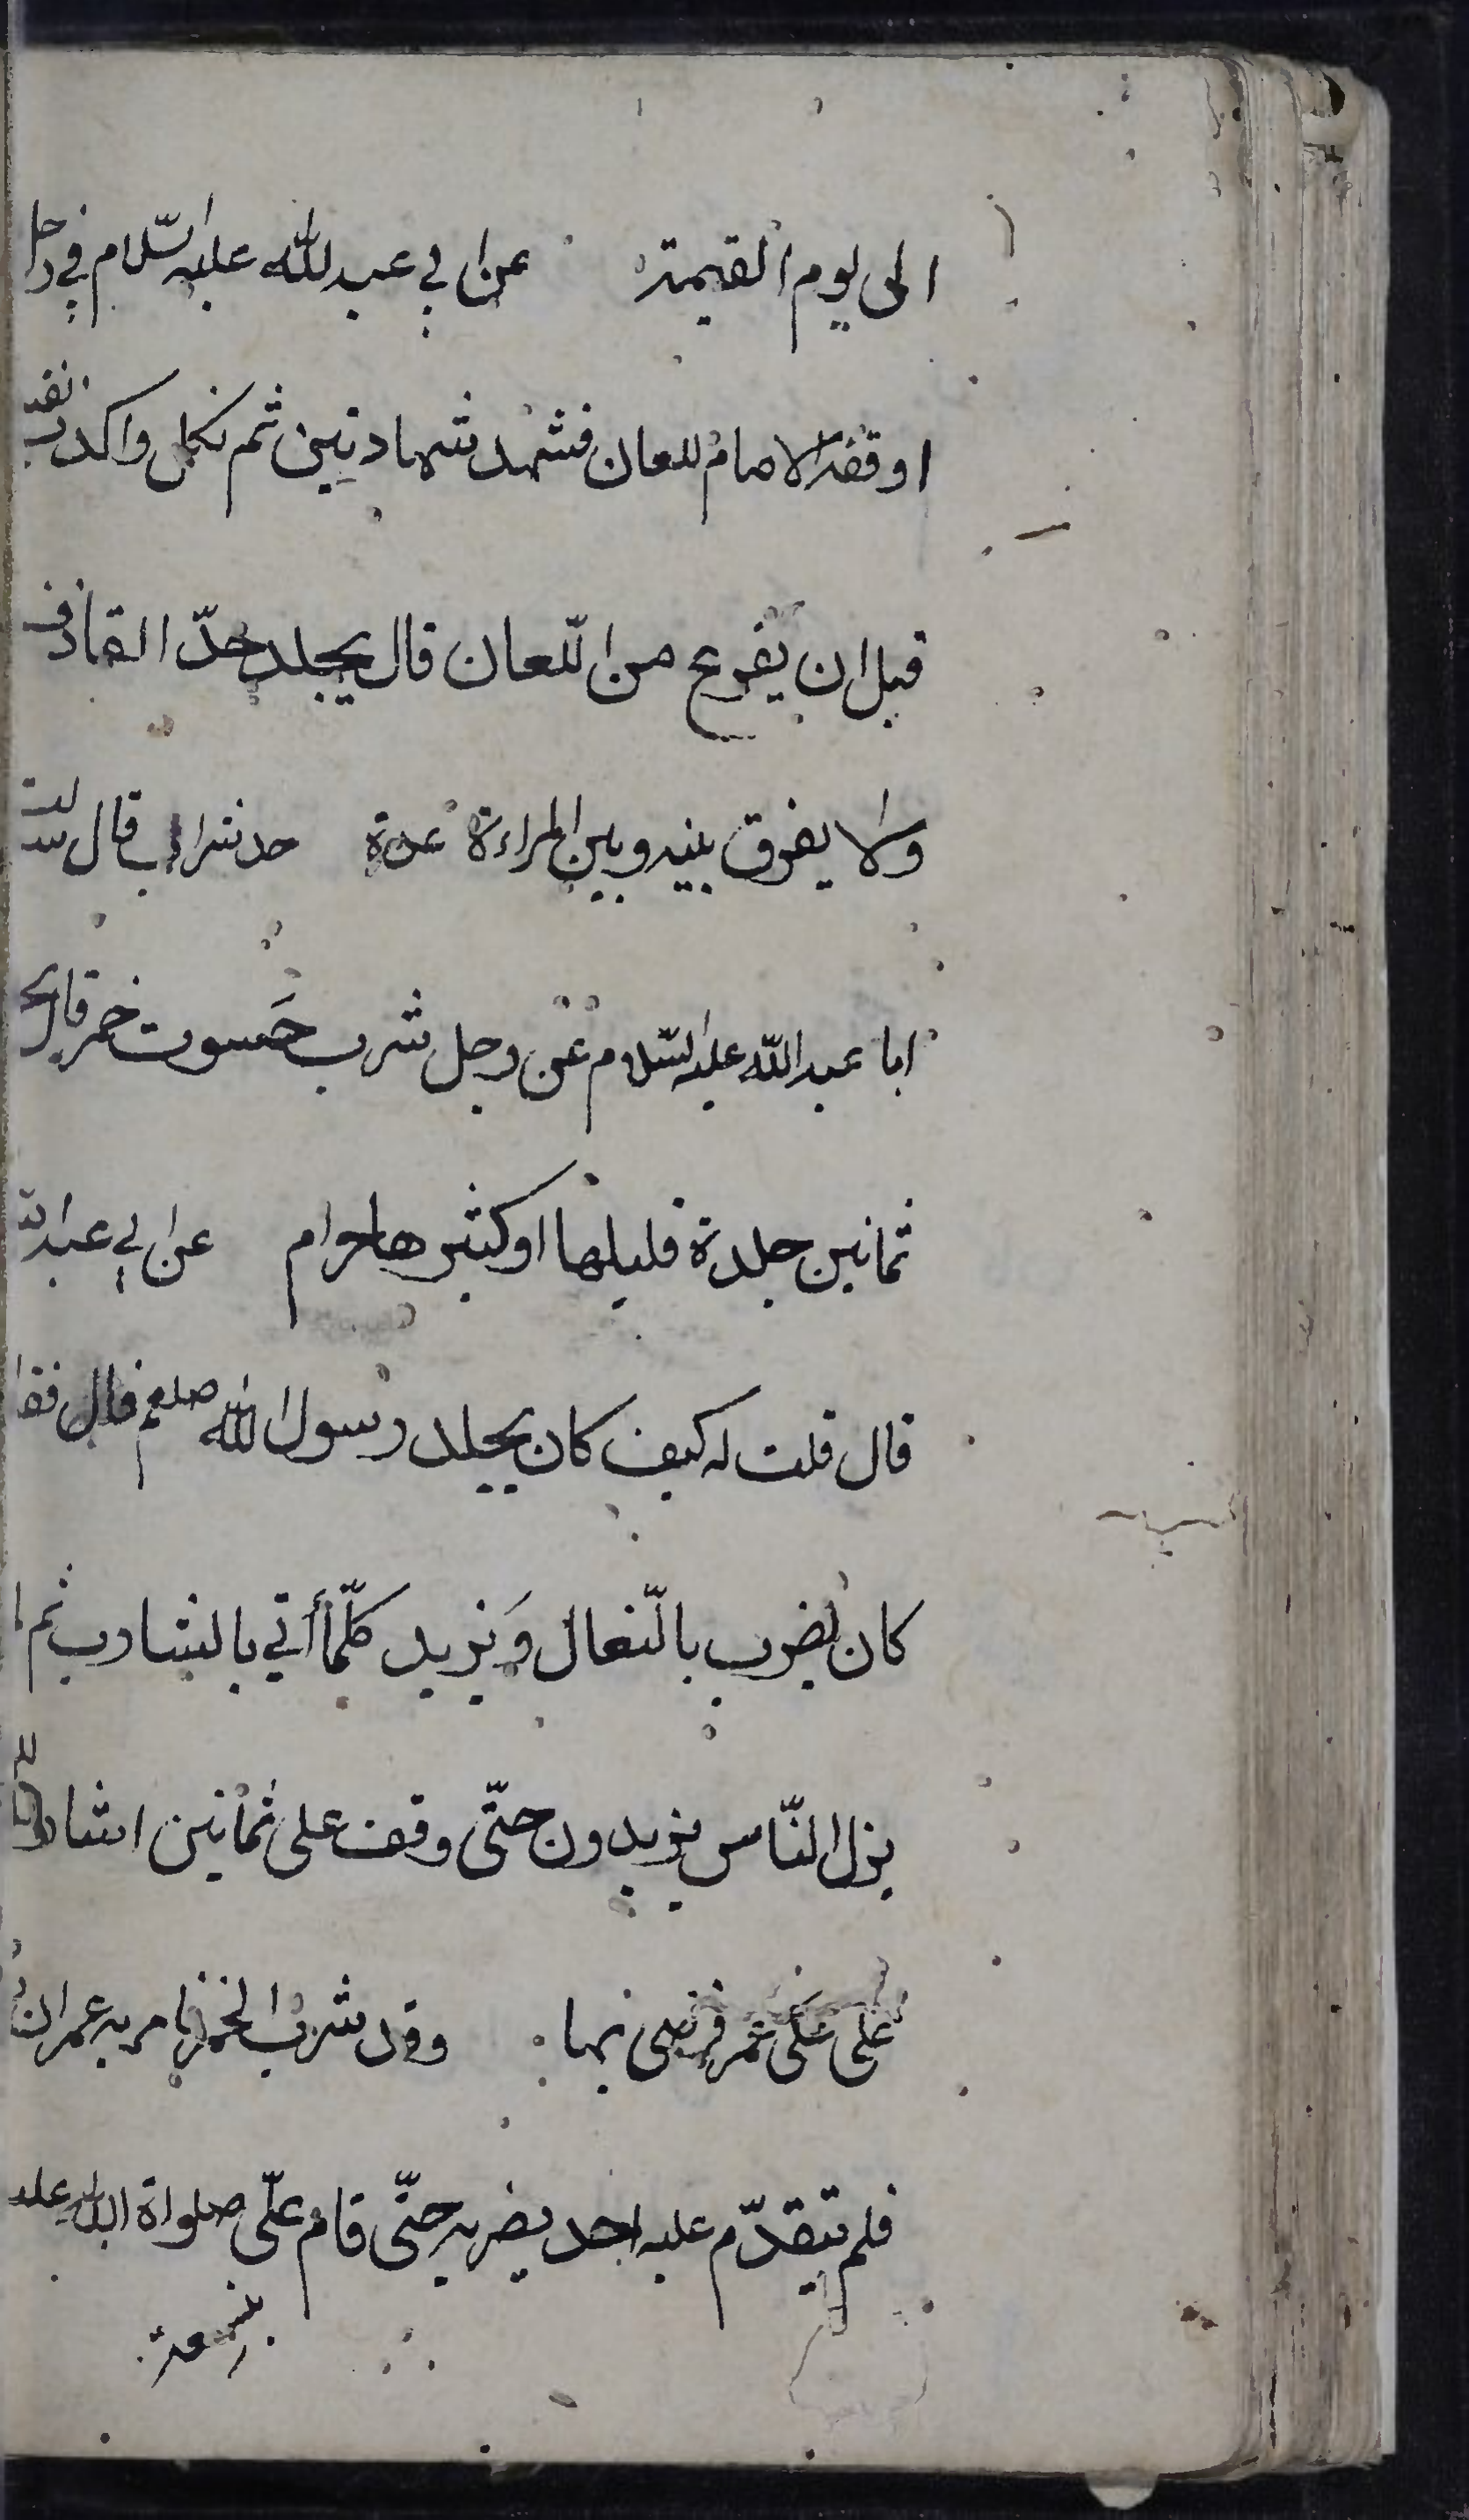 الى يوم القيمة عن ابي عبد الله عليه السلام في رجل
اوقفه الامام للعان فشهد شهادتين ثم نكل واكذب نفسه
قبل ان يفرغ من اللّعان قال يجلد حدّ القاذف
ولا يفرق بينه وبين المراءة عدة قال
ابا عبد الله عليه السّلام عن رجل شرب حَسوت خمر قال
ثمانين جلدة قليلها او كثيرها حرام عن ابي عبد الله
قال قلت له كيف كان يجلد رسول الله صلعم قال فقا
كان يضرب بالنّعال وَيزيد كلّما أتي بالشارب ثم
يزل النّاس يزيدون حتّى وقف على ثمانين اشار
على عَلى عمر فرضى بها وقد شرب الخمر فامر به عمر ان
فلم يتقدّم عليه احد يضربه حتّى قام علّى صلواة الله عليه
بنسعة